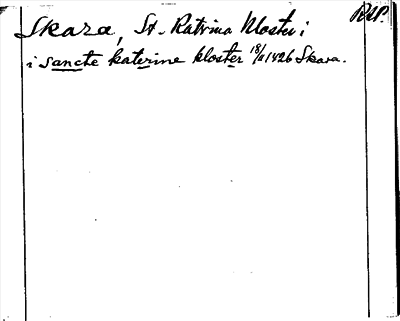 Skara, St. Katrina kloster i
i sancte katerine kloster 18/11 1426 Skara.